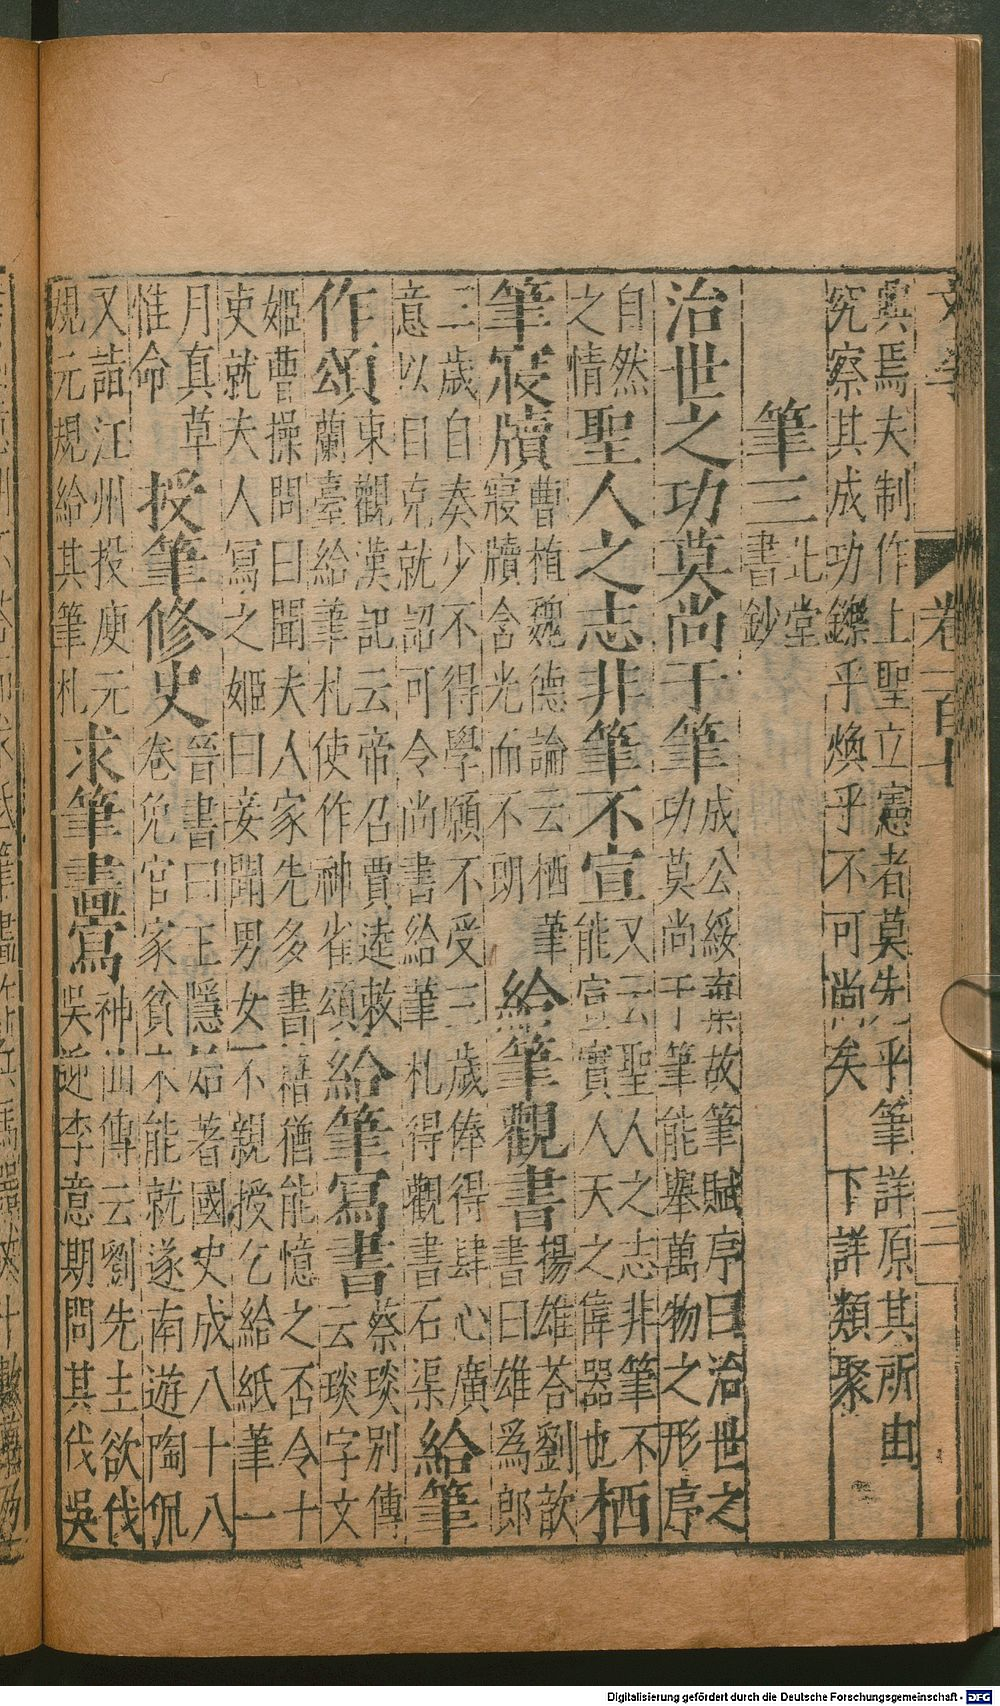 卷一百七
三
異焉夫制作上聖立憲者莫先乎筆詳原其所由
究察其成功鑠乎煥乎不可尚矣 下詳類聚
筆三北堂
書鈔
治世之功莫尚于筆成公綏棄故筆賦序曰治世之
功莫尚于筆能舉萬物之形序
自然
之情聖人之志非筆不宣又云聖人之志非筆不
能宣實人天之偉器也栖
筆寢牘曹植魏德論云栖筆
寢牘含光而不朗給筆觀書揚雄荅劉歆
書曰雄為郎
三歲自奏少不得學願不受三歲俸得肆心廣
意以自克就詔可令尚書給筆札得觀書石渠給筆
作頌東觀漢記云帝召賈逵敕
蘭臺給筆札使作神雀頌給筆寫書蔡琰別傳
云琰字文
姬曹操問曰聞夫人家先多書籍猶能憶之否令十
吏就夫人寫之姬曰妾聞男女不親授乞給紙筆一
月真草
惟命授筆修史晉書曰王隱始著國史成八十八
卷免官家貧不能就遂南遊陶侃
又詣江州投庾元
規元規給其筆札求筆畫鴛神仙傳云劉先主欲伐
吳迎李意期問其伐吳
Digitalisierung gefördert durch die Deutsche Forschungsgemeinschaft - DFG